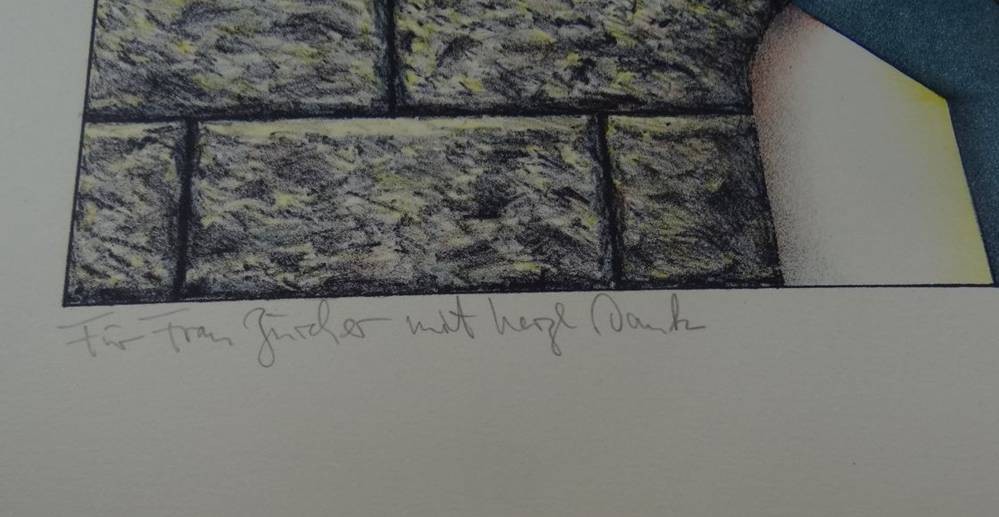 Für Frau Zürcher mit herzl Dank